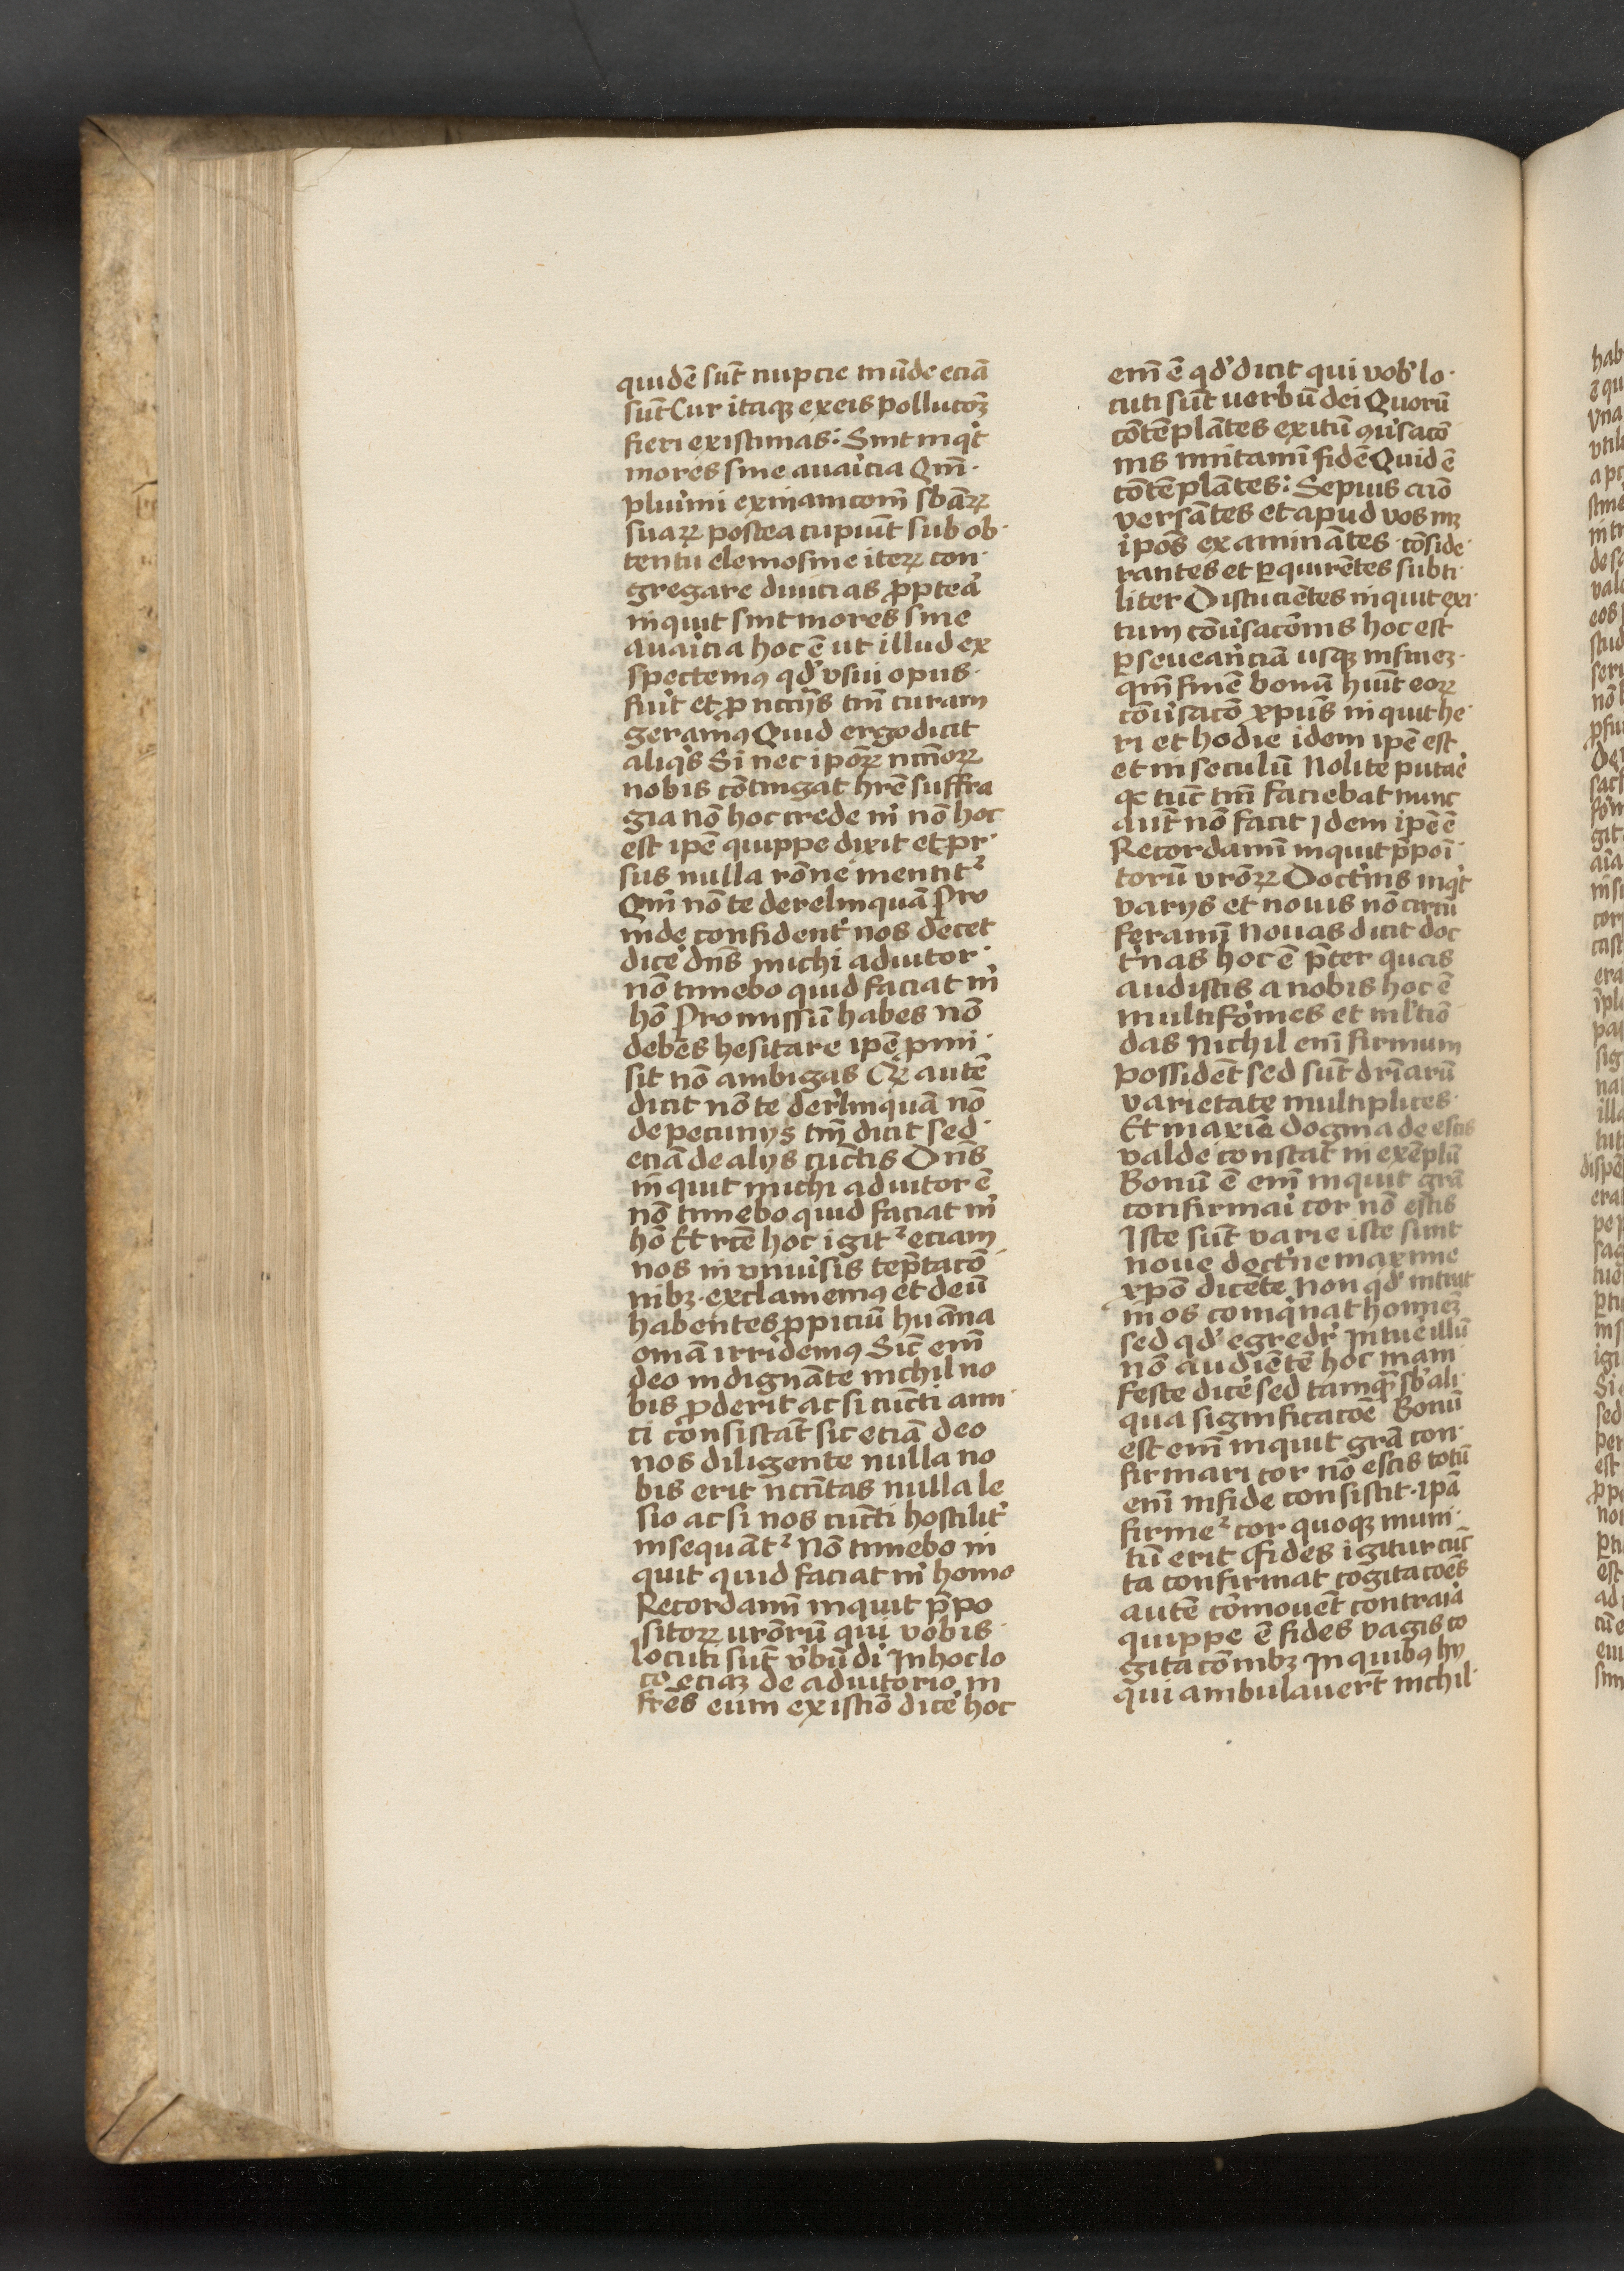 quidē sūt nupcie mūde eciā
sūt Cur itaqz ex eis pollucōz
fieri existimas: Sint inqt
mores sine avaicia Qm̄
pluimi exinanicom̄ sbāꝝ
suaꝝ postea cupiūt sub ob
tentu elemosine iteꝝ con
gregare divicias ꝓptea
inquit sint mores sine
avaicia hoc ē ut illud ex
spectemꝰ qd' vsui opus
fu'it et ꝓ nccīijs tm̄ curam
geramꝰ Quid ergo dicit
aliqs Si nec ipoꝝ nccīoꝝ
nobis cōtingat hr̄e suffra
gia nō hoc crede m' nō hoc
est ipē quippe dixit et pr
sus nulla rōne mentit'
Qm̄ nō te derelinquā Pro
inde confident' nos decet
dice' dn̄s michi adiutor
nō timebo quid faciat m'
hō Promissū habes nō
debes hesitare ipē pmi
sit nō ambigas Qꝝ autē
dicit nō te derlinquā nō
de pecunijs tm̄ dicit sed
eciā de alijs cūctis Dn̄s
inquit michi adiutor ē
nō timebo quid faciat m'
hō Et rc̄e hoc igit' eciam
nos in vniu'sis tēptacō
nibz exclamemꝰ et deū
habentes ꝓpiciū huāna
om̄ā irridemꝰ Sic em̄
deo indignāte nichil no
bis ꝓderit ac si cūcti ami
ci consistāt sic eciā deo
nos diligente nulla no
bis erit nccītas nulla le
sio ac si nos cūcti hostilit'
insequāt' Nō timebo in
quit quid faciat m' homo
Recordamī inquit p̄po
sitoꝝ urōrū qui vobis
locuti sūt v'bū di In hoc lo
co eciaz de adiutorio in
fr̄es eum existiō dice' hoc
em̄ ē qd' dicit qui vob' lo
cuti sūt uerbū dei Quorū
cōtēplātes exitū ꝯu'sacō
nis imitamī fidē Quid ē
cōtēplātes: Sepius cūō
versātes et apud vos mz
ipōs examinātes cōside
rantes et ꝑquirētes subti
liter Discucietes inquit exi
tum cōu'sacōnis hoc est
ꝑseueanciā usqz in finez
qm̄ finē bonū huīt eoꝝ
cōu'sacō xpūs inquit he
ri et hodie idem ipē est
et in seculū Nolite putae'
qc tūc tm̄ faciebat nunc
aut nō facit Idem ipē ē
Recordamī inquit p̄poi
torū vrōꝝ Doct'nis inqt
varijs et nouis nō circū
feramī Nouas dicit doc
t'nas hoc ē p̄ter quas
audistis a nobis hoc ē
multifomes et m'l'tiō
das Nichil em̄ firmum
possidēt sed sūt dr̄īarū
varietate multiplices
Et maxīe dogma de escis
valde constat in exēplū
Bonū ē em̄ inquit grā
confirmai cor nō escis
Iste sūt varie iste sunt
noue doct'ne maxime
xpō dicēte Non qd' intrat
in os comq'nat hominez
sed qd' egredr' Intue' illū
nō audiētē hoc mani
feste dice' sed tamqꝫ sb' ali
qua significatoē Bonū
est em̄ inquit grā con
firmari cor nō escis totū
em̄ in fide consistit ipā
firme' cor quoqz muni
tū erit Fides igitur cūc
ta confirmat cogitacoēs
autē cōmouēt contraia
quippe ē fides vagis co
gitacōnibz In quibꝰ hij
qui ambulauert nichil